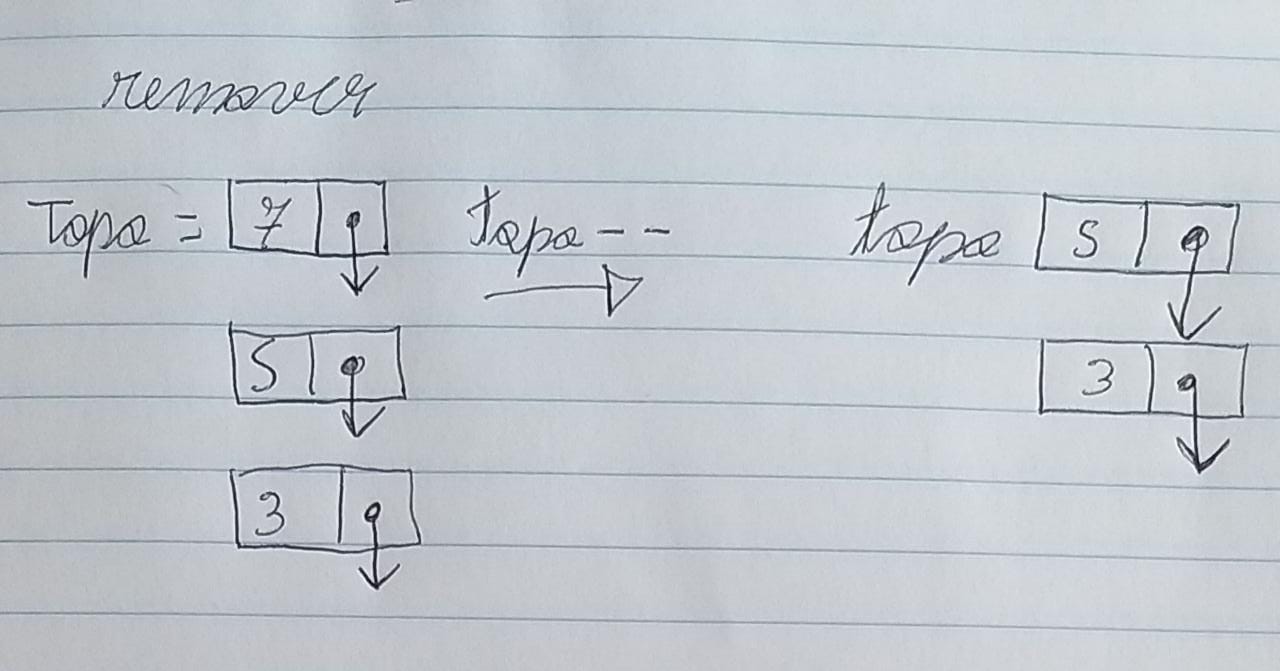 remover
Topo = 7 topo -- topo 5
5 3
3